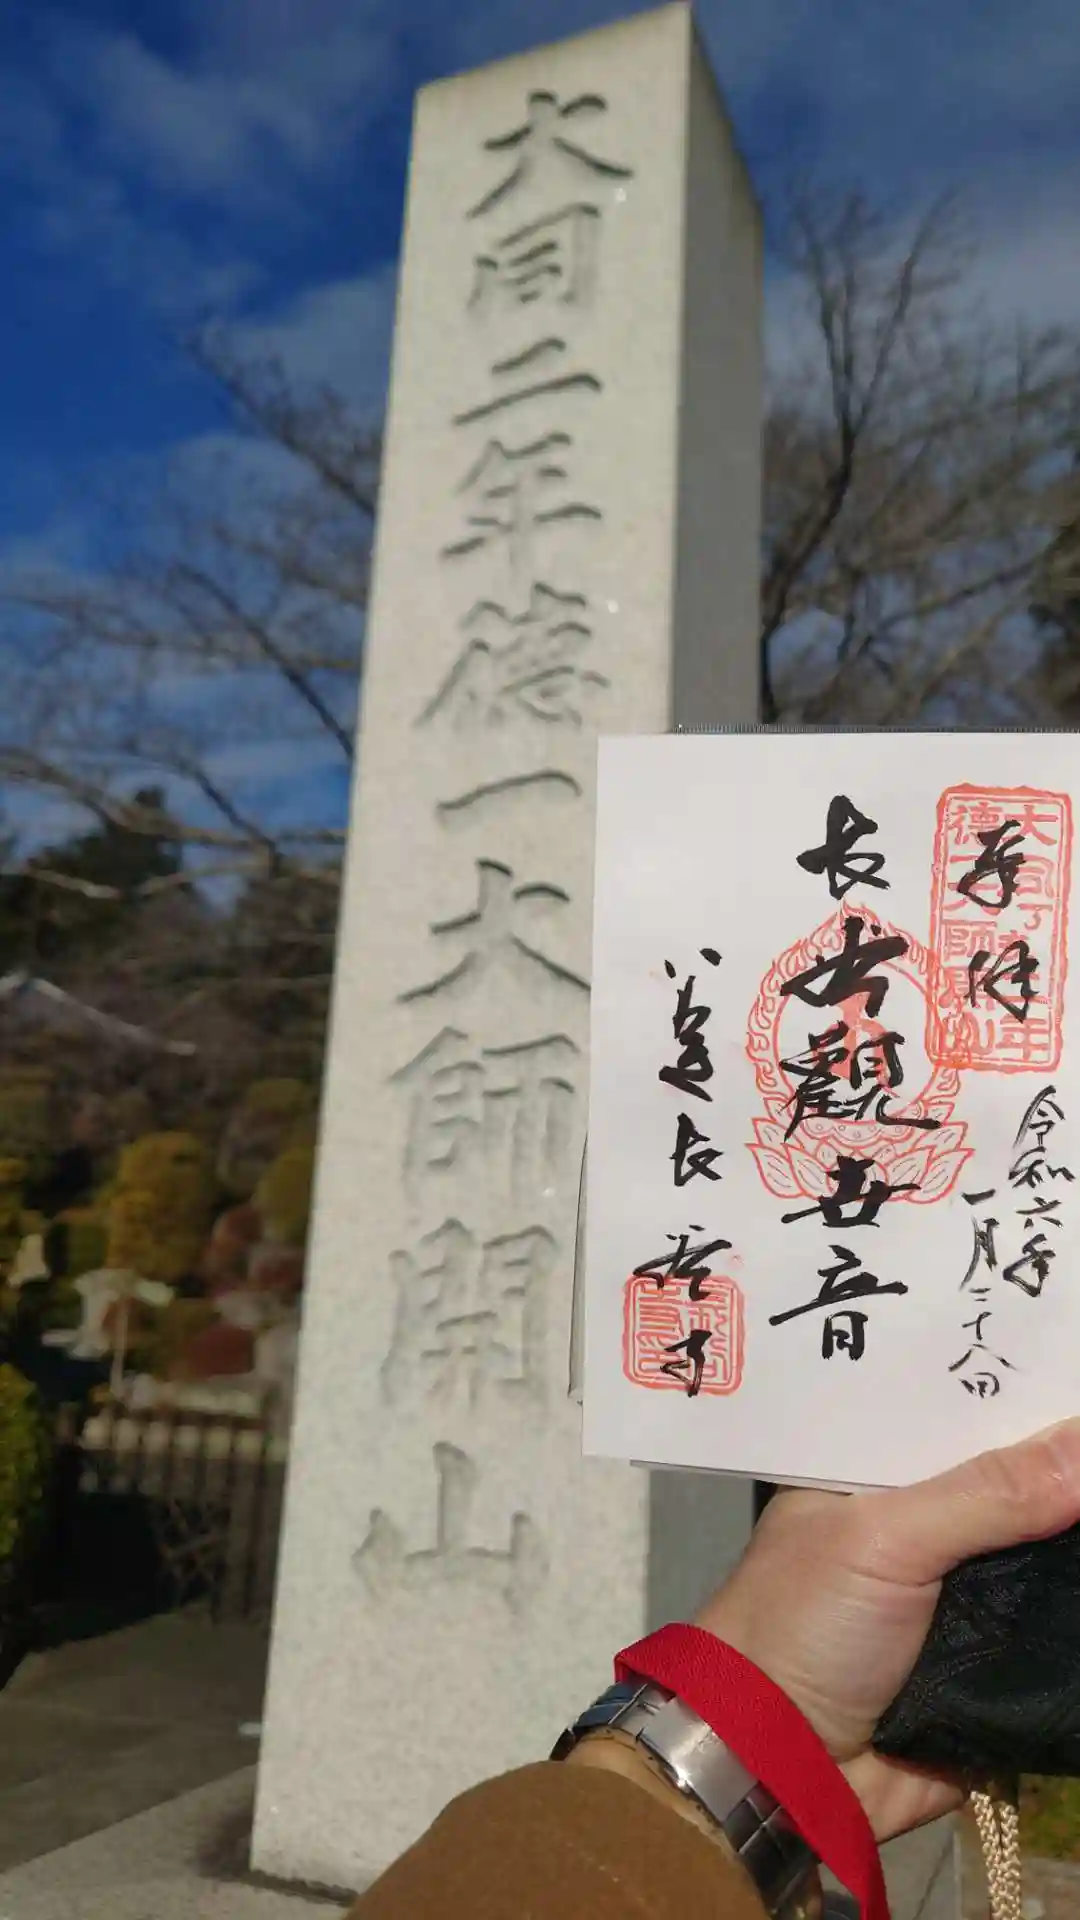 大同二年徳一大師開山
奉拝
大同丁亥二年
徳一大師開山
令和六年
一月二十八日
長谷観世音
八葉山
長谷寺